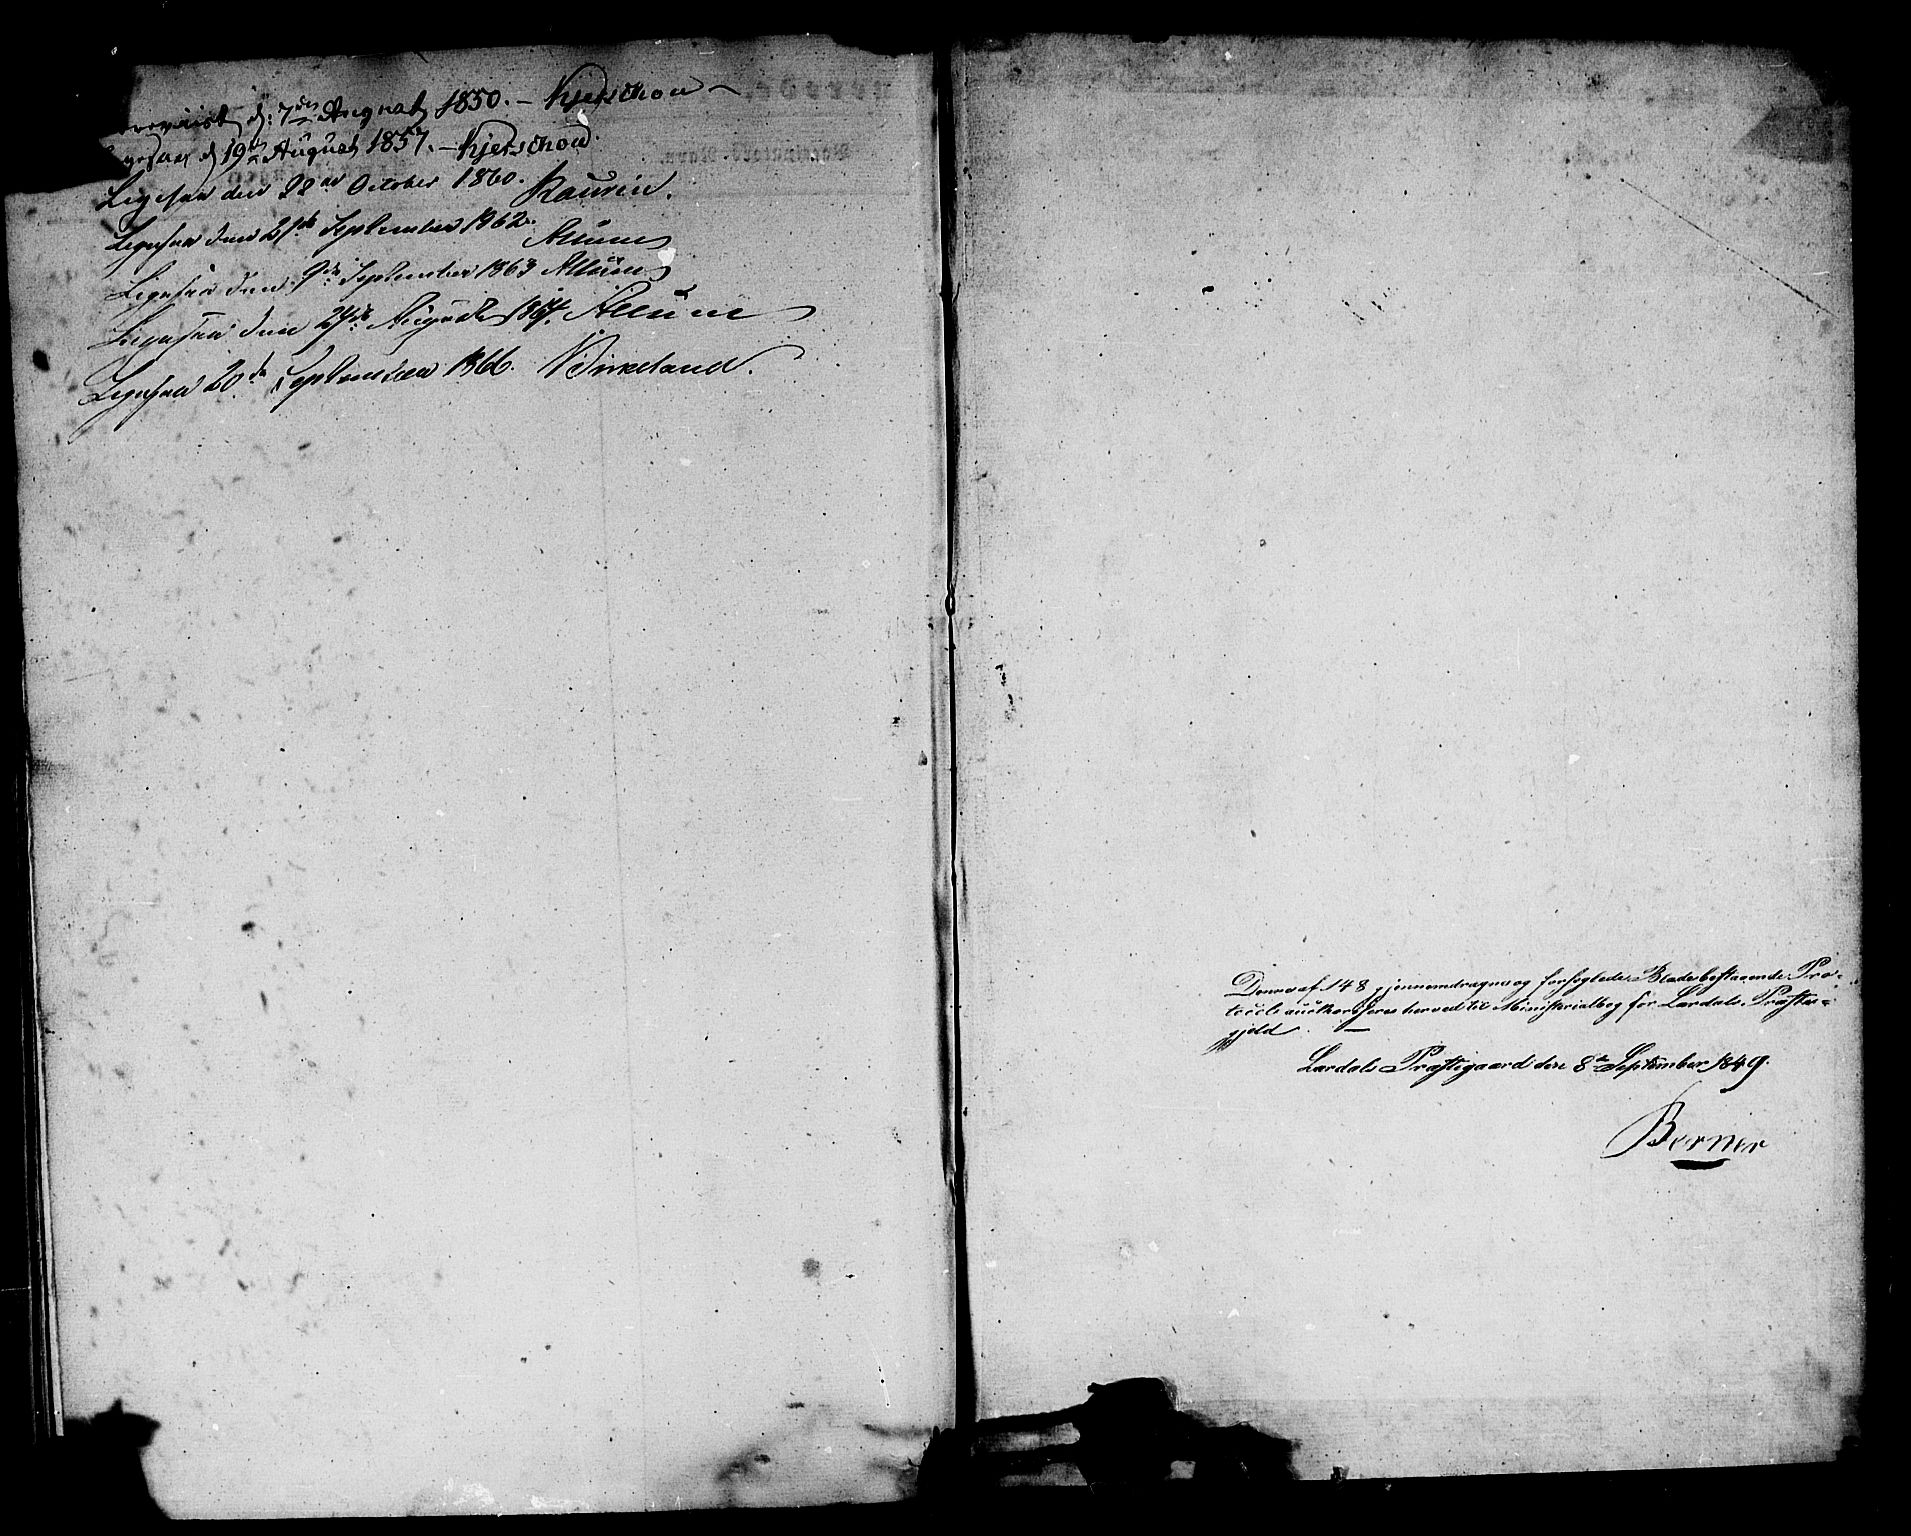 Forevist d: 7de August 1850. – Kjerschow –
Ligesaa d 19de August 1857. – Kjerschow
Ligesaa den 28de October 1860. Kaurin.
Ligesaa den 21de September 1862.
Ligesaa den 9de September 1863
Ligesaa den 24de August 1864.
Ligesaa 20de September 1866. Birkeland.
Denne af 148 gjennemdragne og forseglede Blade bestaaende Pro-
tocol authoriseres herved til Ministerialbog for Lardals Præste-
gjeld. —
Lardals Præstegaard den 8de September 1849.
Berner